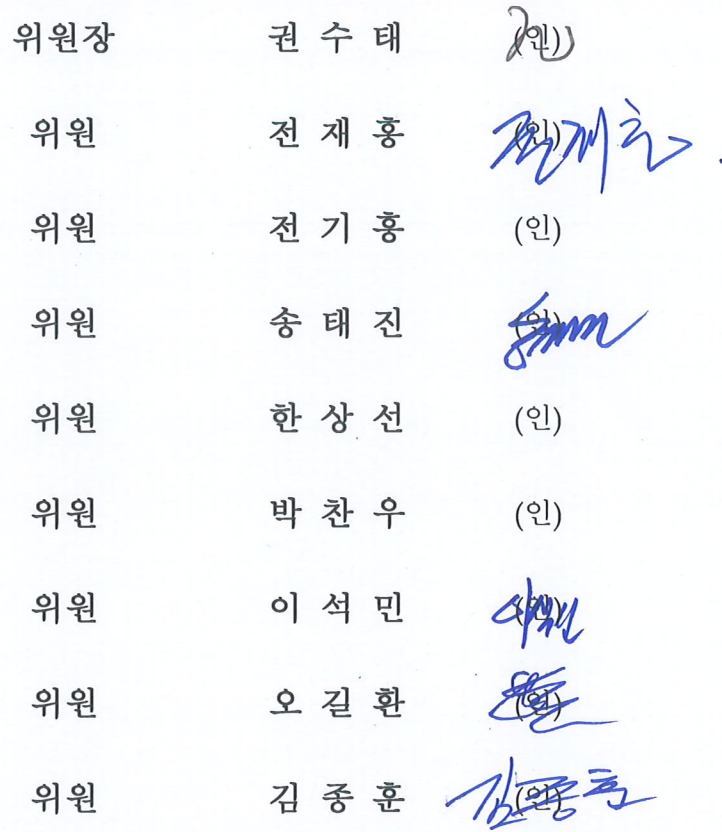 위원장 권 수 태 (인)
위원 전 재 홍 (인) 전재홍
위원 전 기 홍 (인)
위원 송 태 진 (인)
위원 한 상 선 (인)
위원 박 찬 우 (인)
위원 이 석 민 (인) 이석민
위원 오 길 환 (인)
위원 김 종 훈 (인) 김종훈